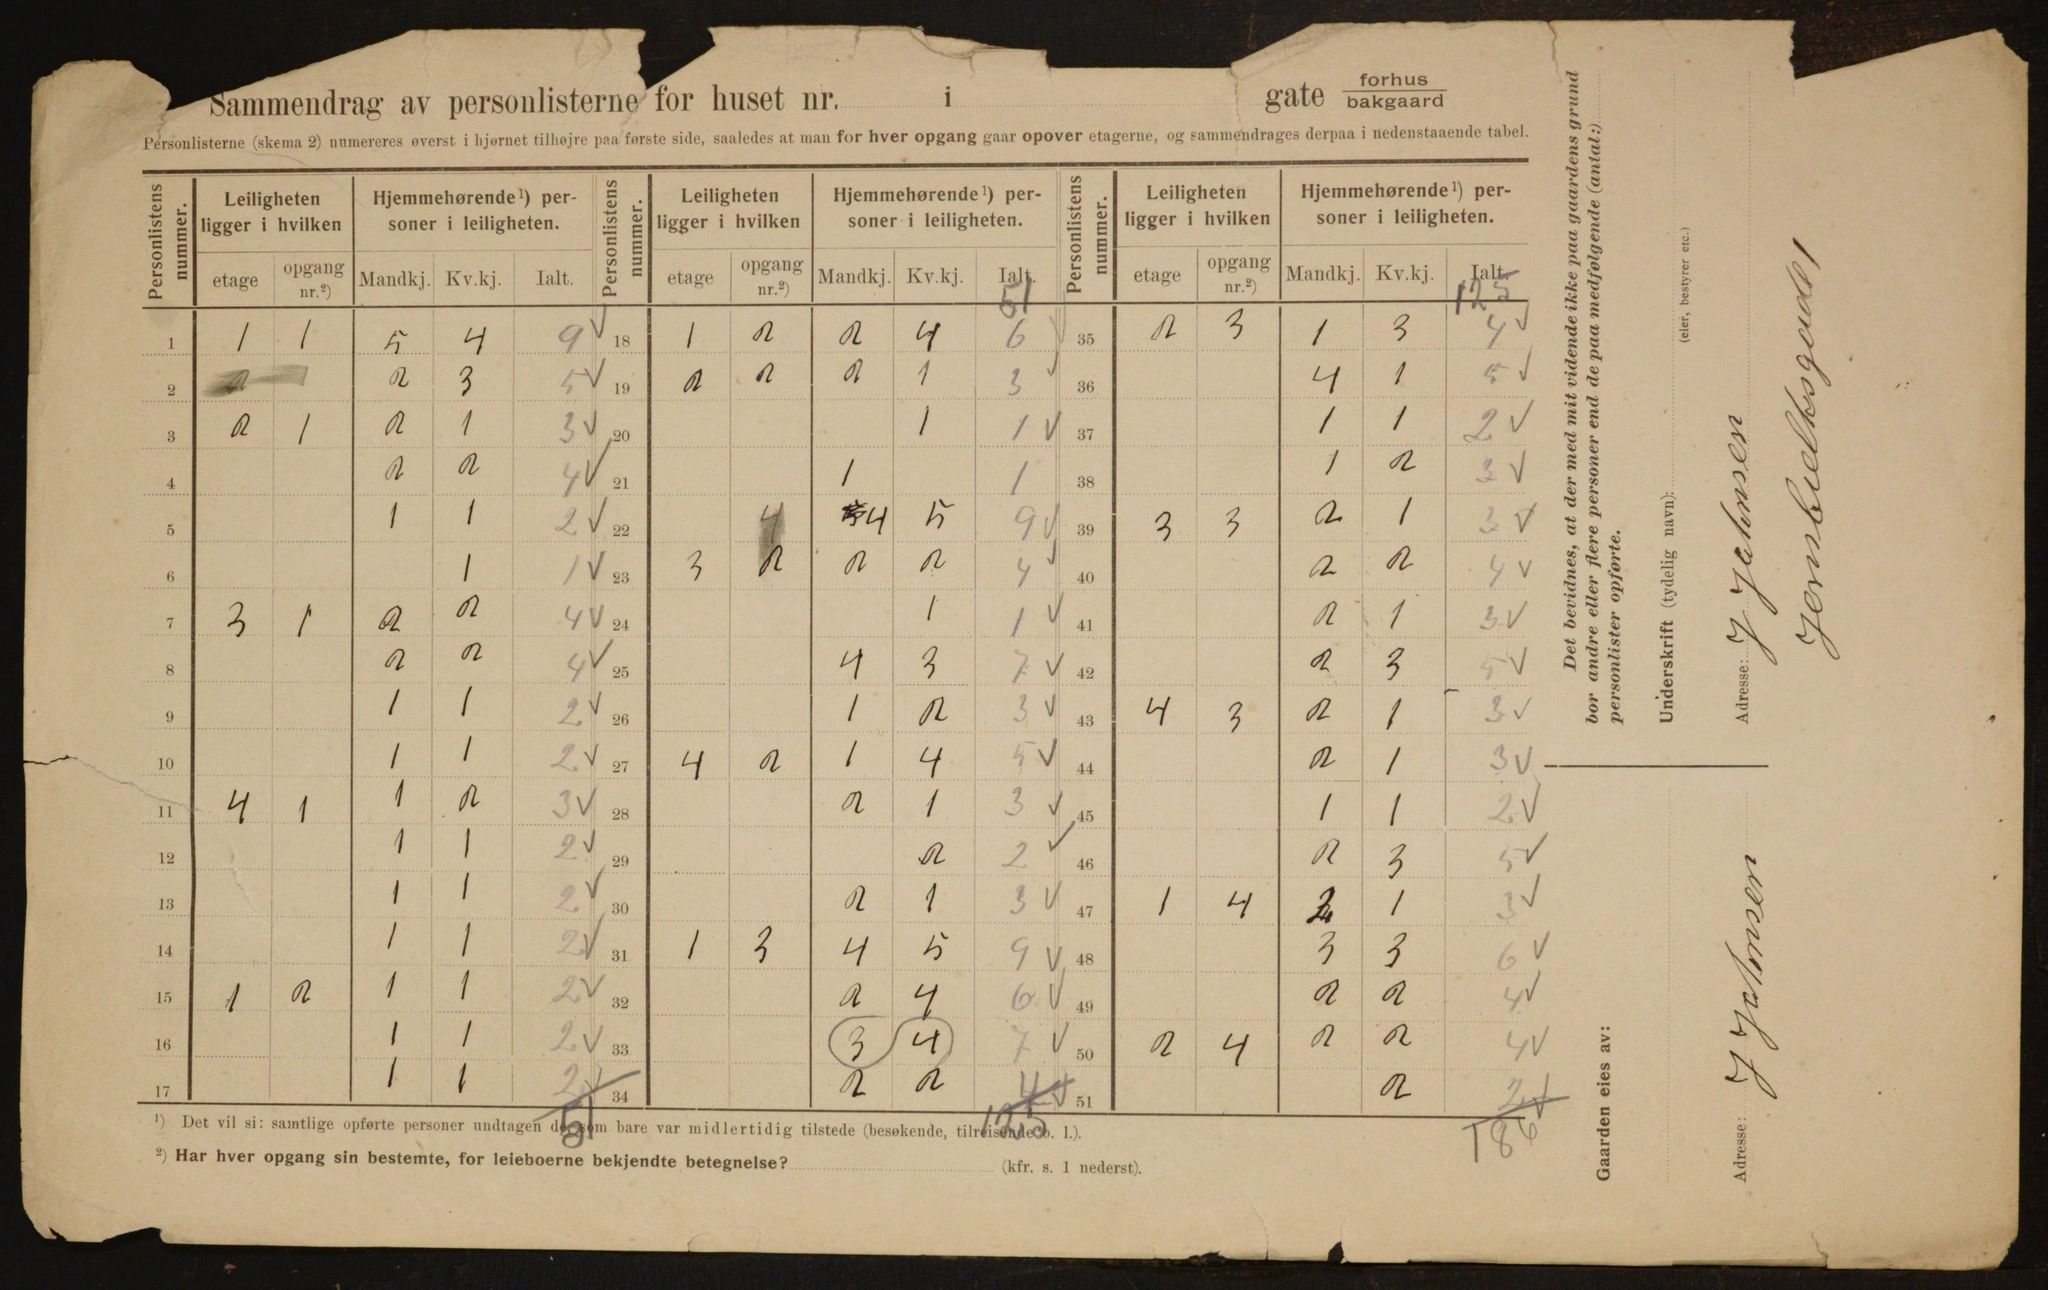 Sammendrag av personlisterne for huset nr. i gate forhus
bakgaard
Personlisterne (skema 2) numereres øverst i hjørnet tilhøjre paa første side, saaledes at man for hver opgang gaar opover etagerne, og sammendrages derpaa i nedenstaaende tabel.
Personlistens nummer. Leiligheten ligger i hvilken Hjemmehørende¹) personer i leiligheten. Personlistens nummer. Leiligheten ligger i hvilken Hjemmehørende¹) personer i leiligheten. Personlistens nummer. Leiligheten ligger i hvilken Hjemmehørende¹) personer i leiligheten.
etage opgang nr.²) Mandkj. Kv.kj. Ialt. etage opgang nr.²) Mandkj. Kv.kj. Ialt. etage opgang nr.²) Mandkj. Kv.kj. Ialt.
51 125
1 1 1 5 4 9 √ 18 1 2 2 4 6 √ 35 2 3 1 3 4 √
2 2 2 3 5 √ 19 2 2 2 1 3 √ 36 4 1 5 √
3 2 1 2 1 3 √ 20 1 1 √ 37 1 1 2 √
4 2 2 4 √ 21 1 1 38 1 2 3 √
5 1 1 2 √ 22 4 4 5 9 √ 39 3 3 2 1 3 √
6 1 1 √ 23 3 2 2 2 4 √ 40 2 2 4 √
7 3 1 2 2 4 √ 24 1 1 √ 41 2 1 3 √
8 2 2 4 √ 25 4 3 7 √ 42 2 3 5 √
9 1 1 2 √ 26 1 2 3 √ 43 4 3 2 1 3 √
10 1 1 2 √ 27 4 2 1 4 5 √ 44 2 1 3 √
11 4 1 1 2 3 √ 28 2 1 3 √ 45 1 1 2 √
12 1 1 2 √ 29 2 2 √ 46 2 3 5 √
13 1 1 2 √ 30 2 1 3 √ 47 1 4 2 1 3 √
14 1 1 2 √ 31 1 3 4 5 9 √ 48 3 3 6 √
15 1 2 1 1 2 √ 32 2 4 6 √ 49 2 2 4 √
16 1 1 2 √ 33 3 4 7 √ 50 2 4 2 2 4 √
17 1 1 2 √ 34 2 2 4 √ 51 2 2 √
51 125 186
¹) Det vil si: samtlige opførte personer undtagen de som bare var midlertidig tilstede (besøkende, tilreisende o. l.).
²) Har hver opgang sin bestemte, for leieboerne bekjendte betegnelse? (kfr. s. 1 nederst).
Det bevidnes, at der med mit vidende ikke paa gaardens grund
bor andre eller flere personer end de paa medfølgende (antal:)
personlister opførte.
Underskrift (tydelig navn):
(eier, bestyrer etc.)
Adresse: J Johnsen
Jernbeltsgade 1
Gaarden eies av:
Adresse: J Johnsen